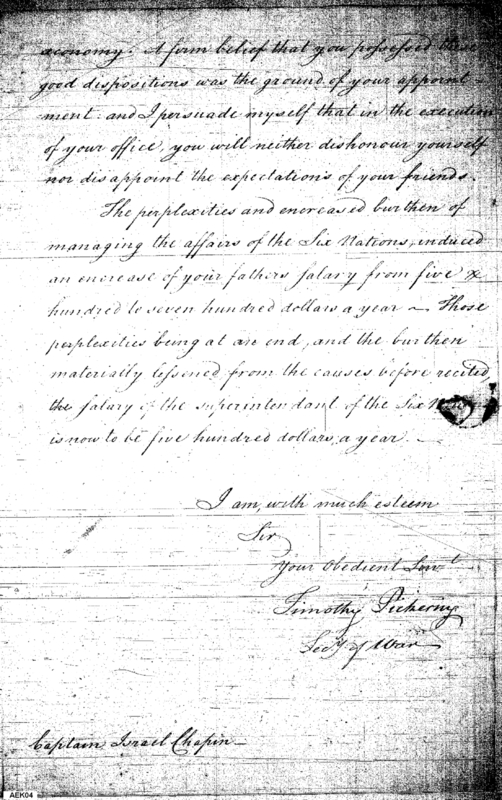 œconomy. A firm belief that you possessed these
good dispositions was the ground of your appoint-
ment: and I persuade myself that in the execution
of your office, you will neither dishonour yourself
nor disappoint the expectations of your friends.
The perplexities and encreased burthen of
managing the affairs of the Six Nations, induced
an encrease of your fathers Salary from five
hundred to seven hundred dollars a year — Those
perplexities being at an end, and the burthen
materially lessened from the causes before recited,
the Salary of the superintendant of the Six
is now to be five hundred dollars, a year. —
I am, with much esteem
Sir
Your Obedient Servt
Timothy Pickering
Secy of War
Captain Israel Chapin
AEK04